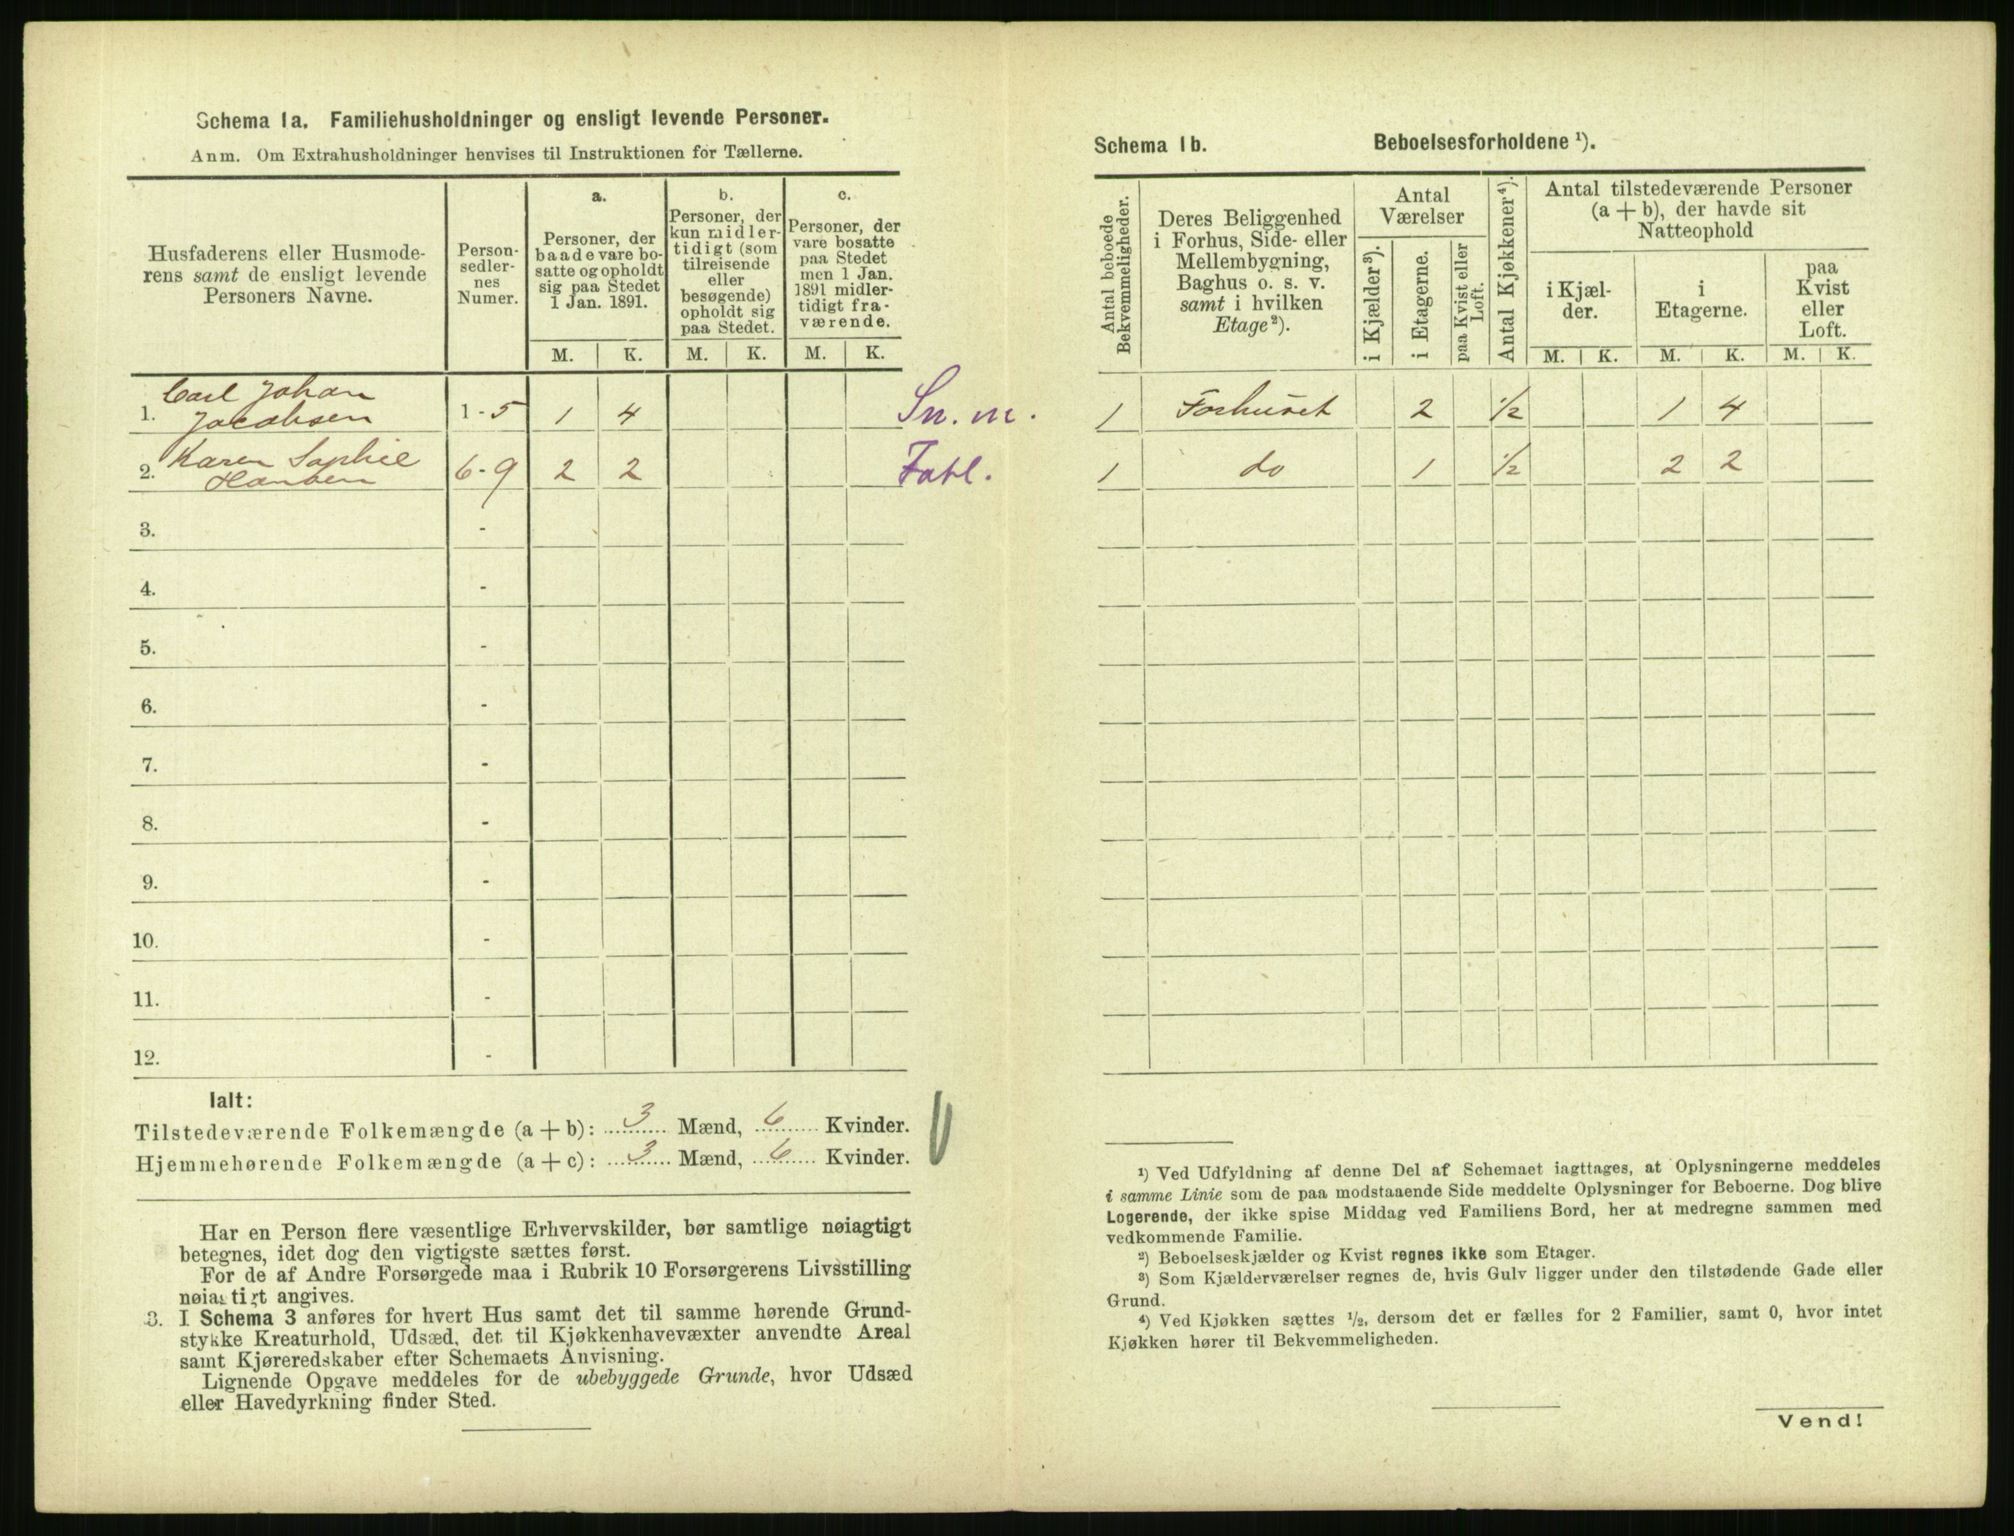 Schema 1a. Familiehusholdninger og ensligt levende Personer.
Anm. Om Extrahusholdninger henvises til Instruktionen for Tællerne.
Husfaderens eller Husmode-
rens samt de ensligt levende
Personers Navne.
Person-
sedler-
nes
Numer.
a.
Personer, der
baade vare bo-
satte og opholdt
sig paa Stedet
1 Jan. 1891.
b.
Personer, der
kun midler-
tidigt (som
tilreisende
eller
besøgende)
opholdt sig
paa Stedet.
c.
Personer, der
vare bosatte
paa Stedet
men 1 Jan.
1891 midler-
tidigt fra-
værende.
M. K. M. K. M. K.
Carl Johan
1. Jacobsen 1-5 1 4 Sn. m.
Karen Sophie
2. Hansen 6-9 2 2
3. -
4. -
5. -
6. -
7. -
8. -
9. -
10. -
11. -
12. -
Ialt:
Tilstedeværende Folkemængde (a + b): 3 Mænd, 6 Kvinder.
Hjemmehørende Folkemængde (a + c): 3 Mænd, 6 Kvinder.
Har en Person flere væsentlige Erhvervskilder, bør samtlige nøiagtigt
betegnes, idet dog den vigtigste sættes først.
For de af Andre Forsørgede maa i Rubrik 10 Forsørgerens Livsstilling
nøiagtigt angives.
3. I Schema 3 anføres for hvert Hus samt det til samme hørende Grund-
stykke Kreaturhold, Udsæd, det til Kjøkkenhavevæxter anvendte Areal
samt Kjøreredskaber efter Schemaets Anvisning.
Lignende Opgave meddeles for de ubebyggede Grunde, hvor Udsæd
eller Havedyrkning finder Sted.
Schema 1b. Beboelsesforholdene ¹).
Antal beboede
Bekvemmeligheder.
Deres Beliggenhed
i Forhus, Side- eller
Mellembygning,
Baghus o. s. v.
samt i hvilken
Etage²).
Antal
Værelser
i Kjælder³).
i Etagerne.
paa Kvist eller
Loft.
Antal Kjøkkener⁴).
Antal tilstedeværende Personer
(a + b), der havde sit
Natteophold
i Kjæl-
der.
i
Etagerne.
paa
Kvist
eller
Loft.
M. K. M. K. M. K.
1 Forhuset 2 ½ 1 4
1 do 1 ½ 2 2
¹) Ved Udfyldning af denne Del af Schemaet iagttages, at Oplysningerne meddeles
i samme Linie som de paa modstaaende Side meddelte Oplysninger for Beboerne. Dog blive
Logerende, der ikke spise Middag ved Familiens Bord, her at medregne sammen med
vedkommende Familie.
²) Beboelseskjælder og Kvist regnes ikke som Etager.
³) Som Kjælderværelser regnes de, hvis Gulv ligger under den tilstødende Gade eller
Grund.
⁴) Ved Kjøkken sættes ½, dersom det er fælles for 2 Familier, samt 0, hvor intet
Kjøkken hører til Bekvemmeligheden.
Vend!